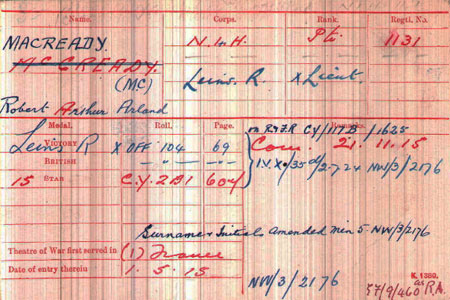 Name. Corps. Rank. Regtl. No.
MACREADY. N.I.H. Pte. 1131
McCREADY.
(MC) Leins. R. X Lieut.
Robert Arthur Acland
Medal. Roll. Page. Remarks.
VICTORY Leins R X OFF 104 69 Com. 21. 11. 15
BRITISH " " "
15 STAR C.Y. 2B1 604 NW/3/2176
Surname & Initials Amended Min 5 NW/3/2176
Theatre of War first served in (1) France
Date of entry therein 1. 5. 15
NW/3/2176
K. 1380.